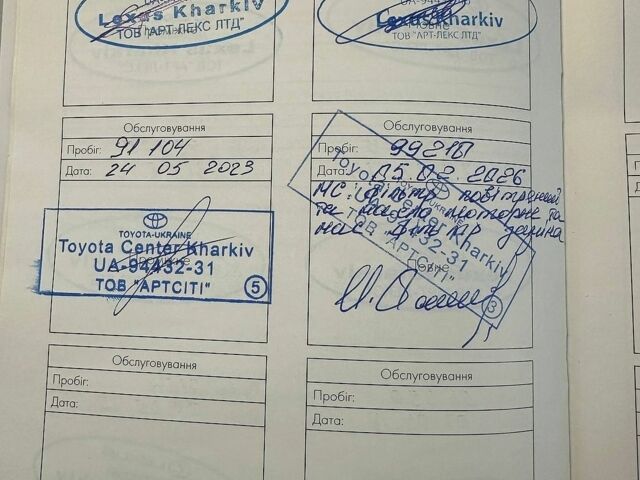 Lexus Kharkiv
ТОВ "АРТ-ЛЕКС ЛТД"
Lexus Kharkiv
ТОВ "АРТ-ЛЕКС ЛТД"
Обслуговування
Пробіг: 91 104
Дата: 24 05 2023
TOYOTA-UKRAINE
Toyota Center Kharkiv
UA-94432-31
ТОВ "АРТСІТІ" 5
Обслуговування
Пробіг: 99210
Дата: 05.02.2026
повітряний
та масла моторне та
Toyota Center Kharkiv
TOYOTA-UKRAINE
UA-94432-31
ТОВ "АРТСІТІ"
3
Обслуговування
Пробіг:
Дата:
Обслуговування
Пробіг:
Дата: